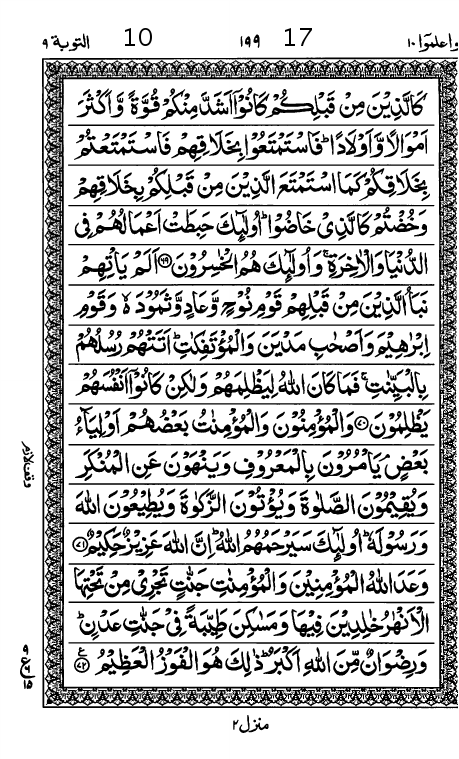 واعلموا ١٠ 17 ١٩٩ 10 التوبة ٩
كَالَّذِيْنَ مِنْ قَبْلِكُمْ كَانُوْۤا اَشَدَّ مِنْكُمْ قُوَّةً وَّ اَكْثَرَ
اَمْوَالًا وَّ اَوْلَادًاؕ فَاسْتَمْتَعُوْا بِخَلَاقِهِمْ فَاسْتَمْتَعْتُمْ
بِخَلَاقِكُمْ كَمَا اسْتَمْتَعَ الَّذِيْنَ مِنْ قَبْلِكُمْ بِخَلَاقِهِمْ
وَخُضْتُمْ كَالَّذِىْ خَاضُوْاؕ اُولٰٓئِكَ حَبِطَتْ اَعْمَالُهُمْ فِى
الدُّنْيَا وَالْاٰخِرَةِۚ وَ اُولٰٓئِكَ هُمُ الْخٰسِرُوْنَ ﴿۶۹﴾ اَلَمْ يَاْتِهِمْ
نَبَاُ الَّذِيْنَ مِنْ قَبْلِهِمْ قَوْمِ نُوْحٍ وَّعَادٍ وَّثَمُوْدَ ۙ۬ وَقَوْمِ
اِبْرٰهِيْمَ وَاَصْحٰبِ مَدْيَنَ وَالْمُؤْتَفِكٰتِؕ اَتَتْهُمْ رُسُلُهُمْ
بِالْبَيِّنٰتِۚ فَمَا كَانَ اللّٰهُ لِيَظْلِمَهُمْ وَلٰكِنْ كَانُوْۤا اَنْفُسَهُمْ
يَظْلِمُوْنَ ﴿۷۰﴾ وَالْمُؤْمِنُوْنَ وَالْمُؤْمِنٰتُ بَعْضُهُمْ اَوْلِيَآءُ
بَعْضٍۘ يَاْمُرُوْنَ بِالْمَعْرُوْفِ وَيَنْهَوْنَ عَنِ الْمُنْكَرِ
وَيُقِيْمُوْنَ الصَّلٰوةَ وَيُؤْتُوْنَ الزَّكٰوةَ وَيُطِيْعُوْنَ اللّٰهَ
وَرَسُوْلَهٗؕ اُولٰٓئِكَ سَيَرْحَمُهُمُ اللّٰهُؕ اِنَّ اللّٰهَ عَزِيْزٌ حَكِيْمٌ ﴿۷۱﴾
وَعَدَ اللّٰهُ الْمُؤْمِنِيْنَ وَالْمُؤْمِنٰتِ جَنّٰتٍ تَجْرِىْ مِنْ تَحْتِهَا
الْاَنْهٰرُ خٰلِدِيْنَ فِيْهَا وَمَسٰكِنَ طَيِّبَةً فِىْ جَنّٰتِ عَدْنٍؕ
وَرِضْوَانٌ مِّنَ اللّٰهِ اَكْبَرُؕ ذٰلِكَ هُوَ الْفَوْزُ الْعَظِيْمُ ﴿۷۲﴾
وقف لازم
٩
ع
١٥
منزل ٢